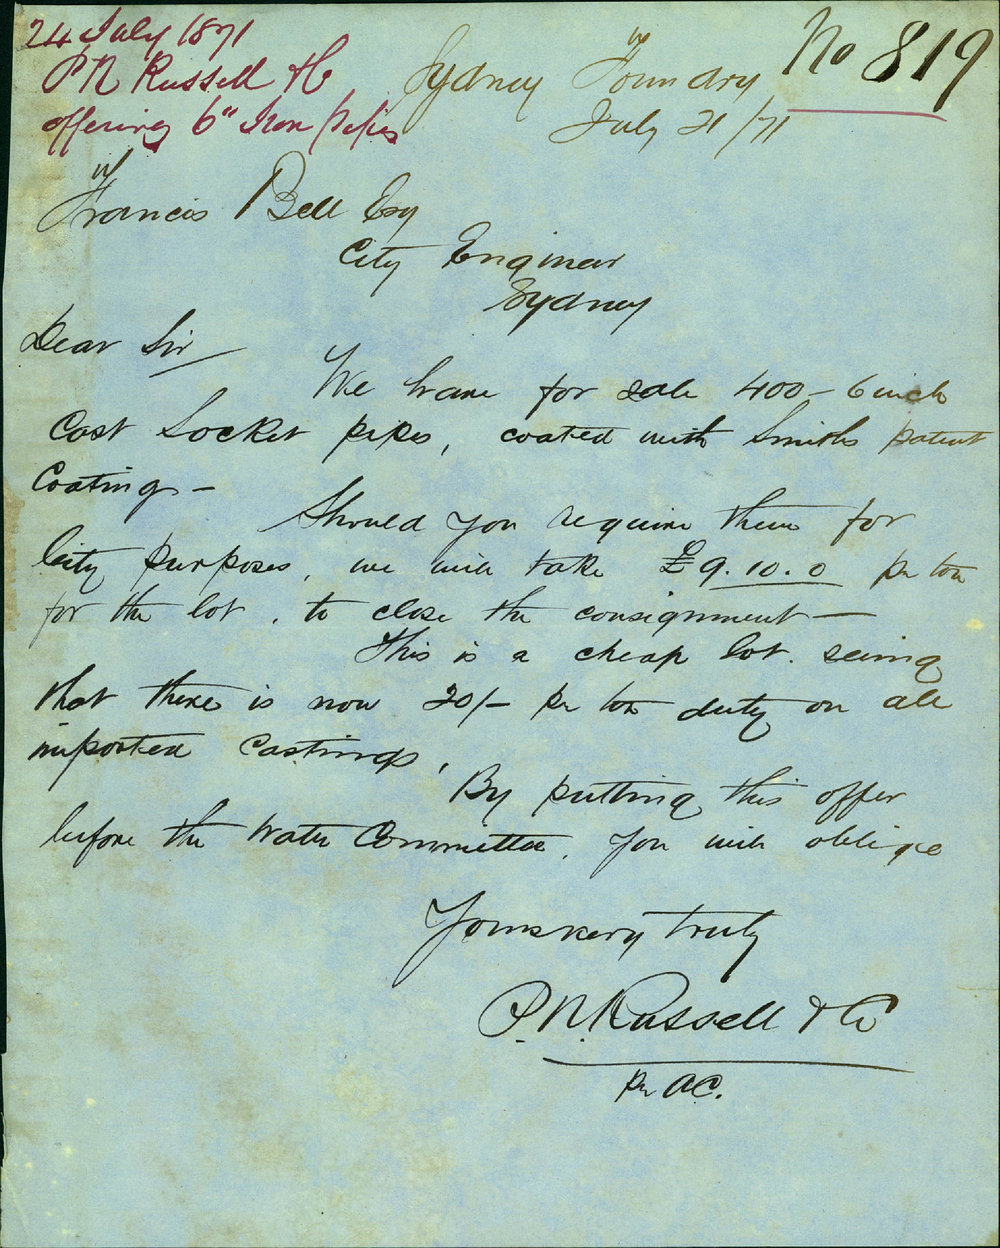 24 July 1871
P N Russell & Co
offering 6" Iron Pipes
No 819
Sydney Foundry
July 21/71
Francis Bell Esq
City Engineer
Sydney
Dear Sir
We have for sale 400 - 6 inch
Cast Socket pipes, coated with Smiths patent
Coating -
Should you require them for
City purposes, we will take £9.10.0 per ton
for the lot, to close the consignment -
This is a cheap lot. seeing
that there is now 20/- per ton duty on all
imported Castings,
By putting this offer
before the Water Committee, you will oblige
Yours very truly
P. N. Russell & Co
per AC.